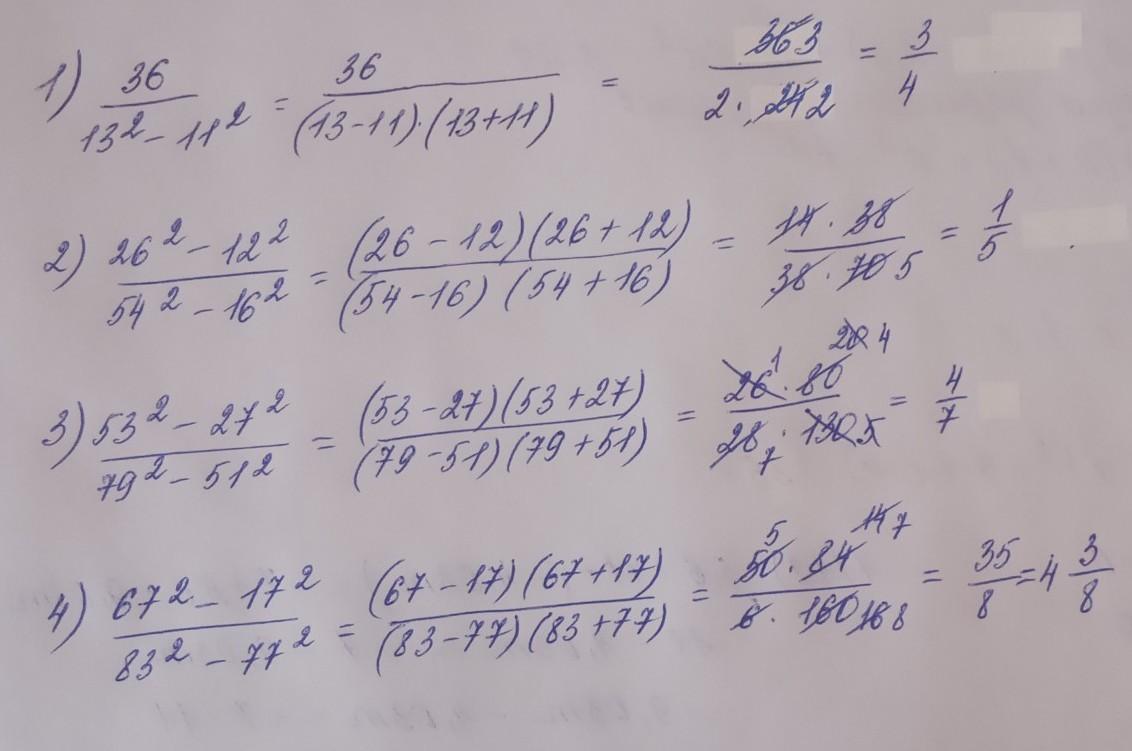 1) 36/(13² - 11²) = 36/((13-11)·(13+11)) = 36 3/(2·24 2) = 3/4
2) (26² - 12²)/(54² - 16²) = ((26-12)(26+12))/((54-16)(54+16)) = (14·38)/(38·70 5) = 1/5
3) (53² - 27²)/(79² - 51²) = ((53-27)(53+27))/((79-51)(79+51)) = (26 1·80 20 4)/(28 7·130 5) = 4/7
4) (67² - 17²)/(83² - 77²) = ((67-17)(67+17))/((83-77)(83+77)) = (50 5·84 14 7)/(6·160 16 8) = 35/8 = 4 3/8